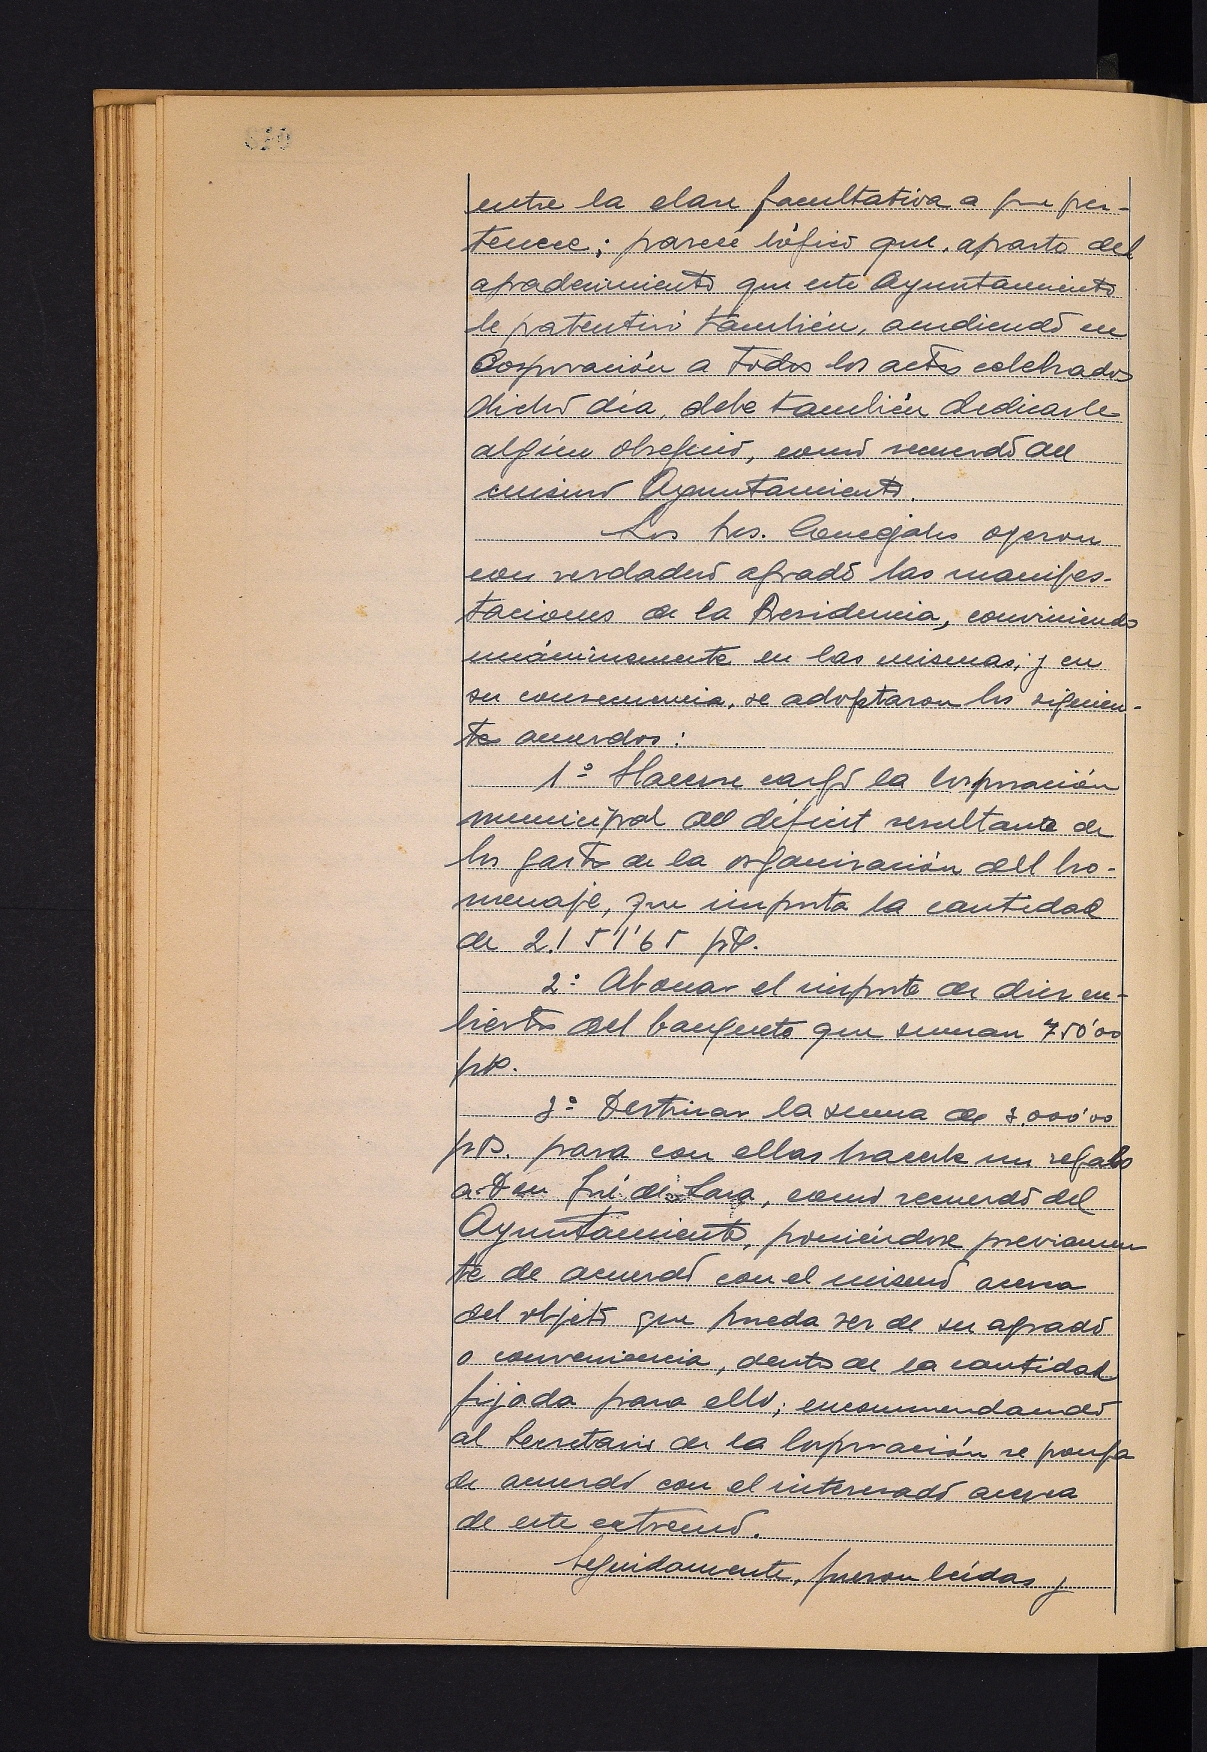 entre la clase facultativa a que per-
tenece; parece lógico que, aparte del
agradecimiento que este Ayuntamiento
le patentizó también, acudiendo en
Corporación a todos los actos celebrados
dicho día, debe también dedicarle
algún obsequio, como recuerdo del
mismo Ayuntamiento.
Los Sres. Concejales oyeron
con verdadero agrado las manifes-
taciones de la Presidencia, conviniendo
unánimemente en las mismas; y en
su consecuencia, se adoptaron los siguien-
te acuerdos:
1º Hacerse cargo la Corporación
municipal del déficit resultante de
los gastos de la organización dell ho-
menaje, que importa la cantidad
de 2.151'65 pts.
2º Abonar el importe de diez cu-
biertos del banquete que suman 750'00
pts.
3º Destinar la suma de 3.000'00
pts. para con ellas hacerle un regalo
a Don José de Lara, como recuerdo del
Ayuntamiento, poniéndose previamen
te de acuerdo con el mismo acerca
del objeto que pueda ser de su agrado
o conveniencia, dentro de la cantidad
fijada para ello; encomendando
al Secretario de la Corporación se ponga
de acuerdo con el interesado acerca
de este extremo.
Seguidamente, fueron leídas y